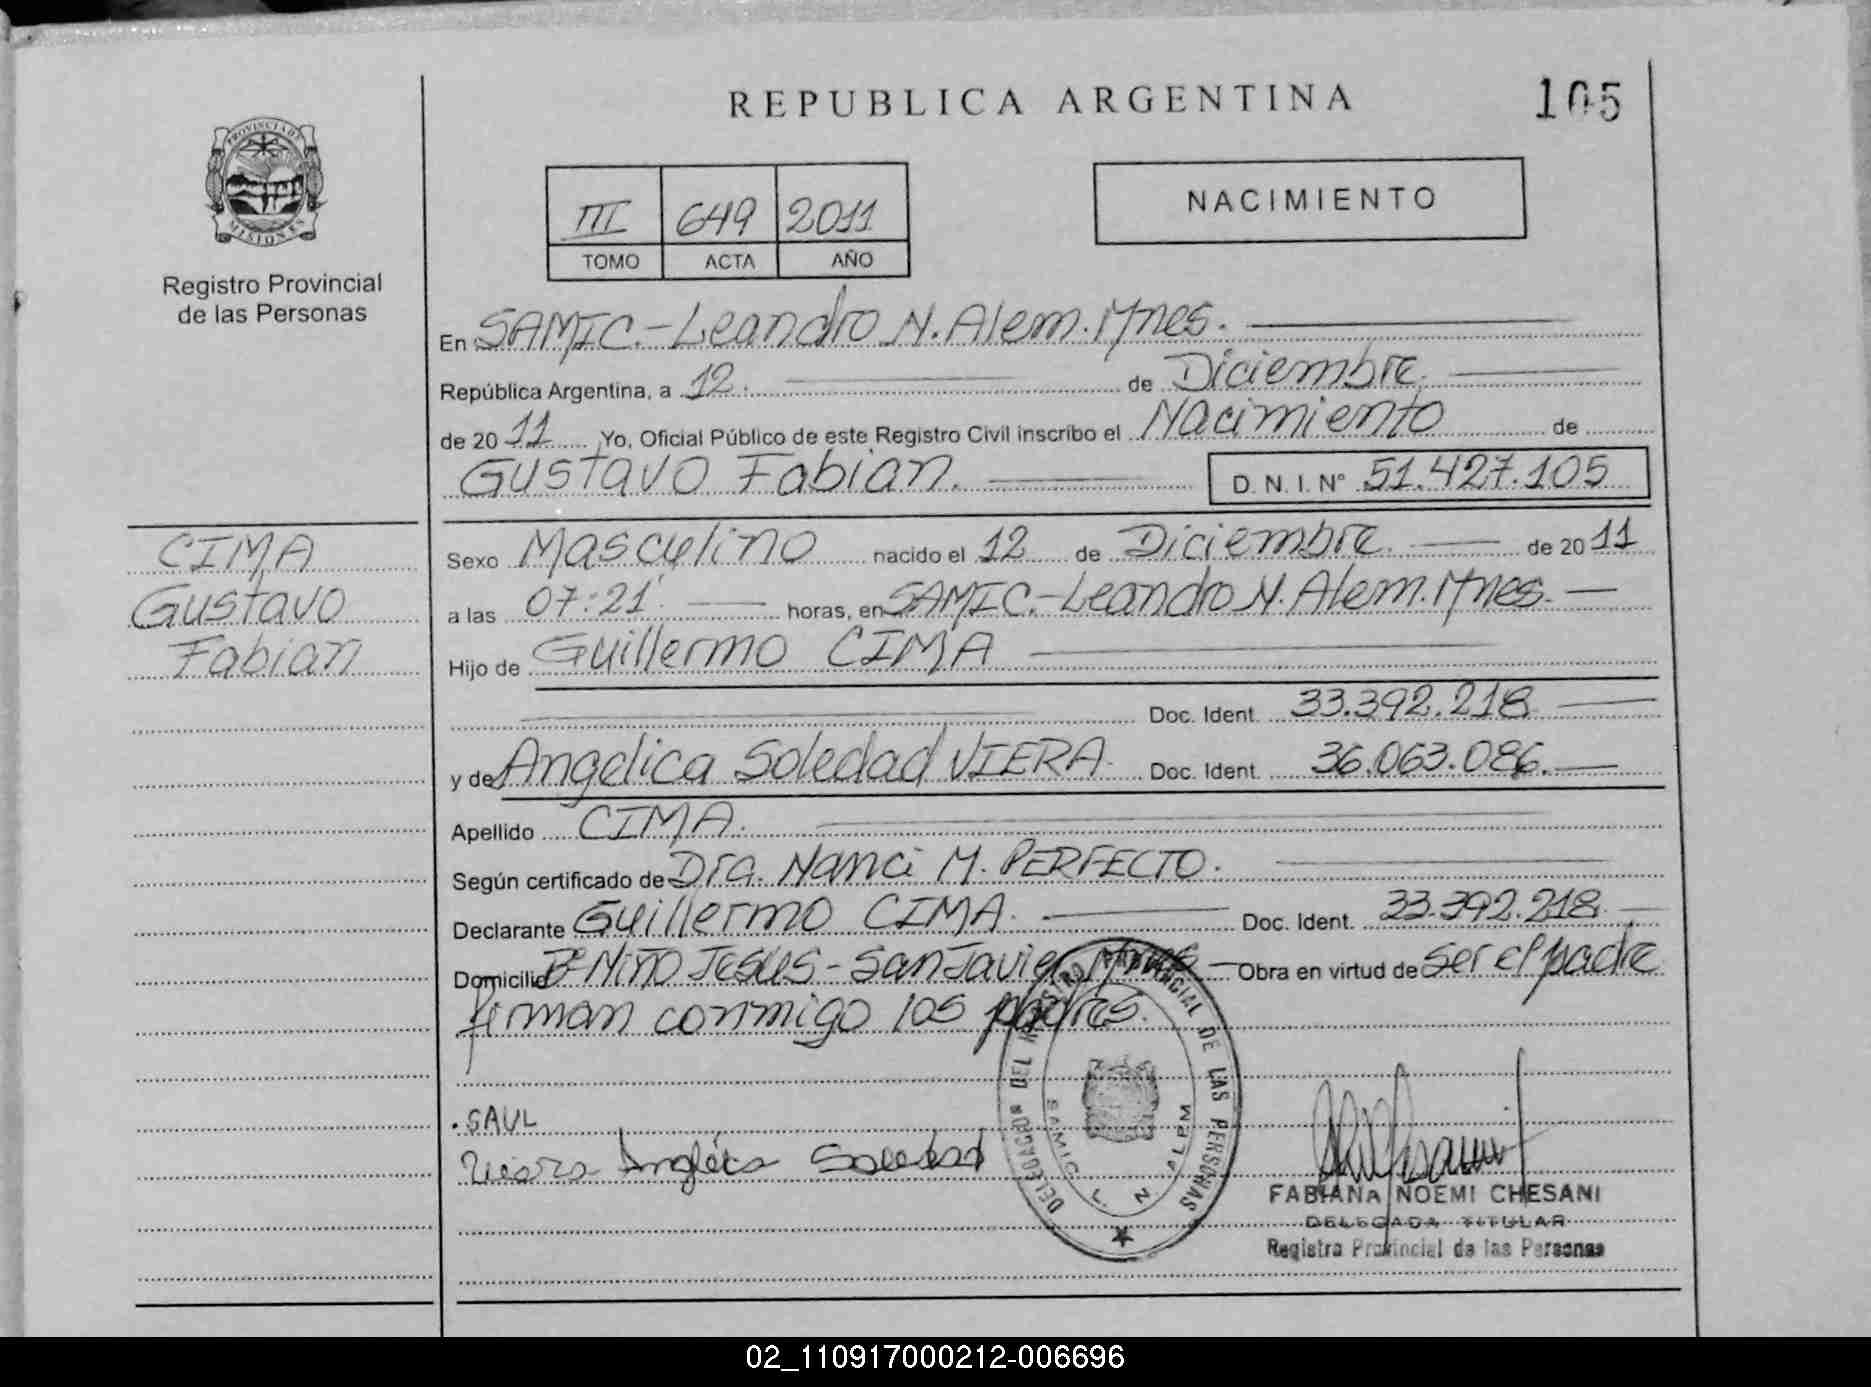 REPUBLICA ARGENTINA
105
PROVINCIA DE
MISIONES
Registro Provincial
de las Personas
III 649 2011
TOMO ACTA AÑO
NACIMIENTO
En SAMIC.-Leandro N. Alem. Mnes.
República Argentina, a 12. de Diciembre.
de 20 11 Yo, Oficial Público de este Registro Civil inscribo el Nacimiento de
Gustavo Fabian. D. N. I. N° 51.427.105
CIMA
Gustavo
Fabian
Sexo Masculino nacido el 12 de Diciembre. de 20 11
a las 07:21' horas, en SAMIC.-Leandro N. Alem. Mnes.
Hijo de Guillermo CIMA
Doc. Ident. 33.392.218
y de Angelica Soledad VIERA. Doc. Ident. 36.063.086.
Apellido CIMA.
Según certificado de Dra. Nanci M. PERFECTO.
Declarante Guillermo CIMA. Doc. Ident. 33.392.218
Domicilio B° Niño Jesús - San Javier Mnes Obra en virtud de Ser el padre
firman conmigo los padres.
DELEGADO DEL REGISTRO PROVINCIAL DE LAS PERSONAS
SAMIC L. N. ALEM
.SAUL
Soledad
FABIANA NOEMI CHESANI
DELEGADA TITULAR
Registro Provincial de las Personas
02_110917000212-006696